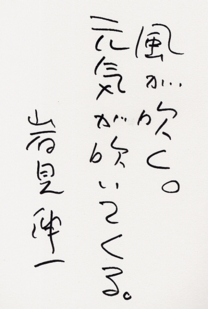 風が吹く。
元気が吹いてくる。
岩見伸一